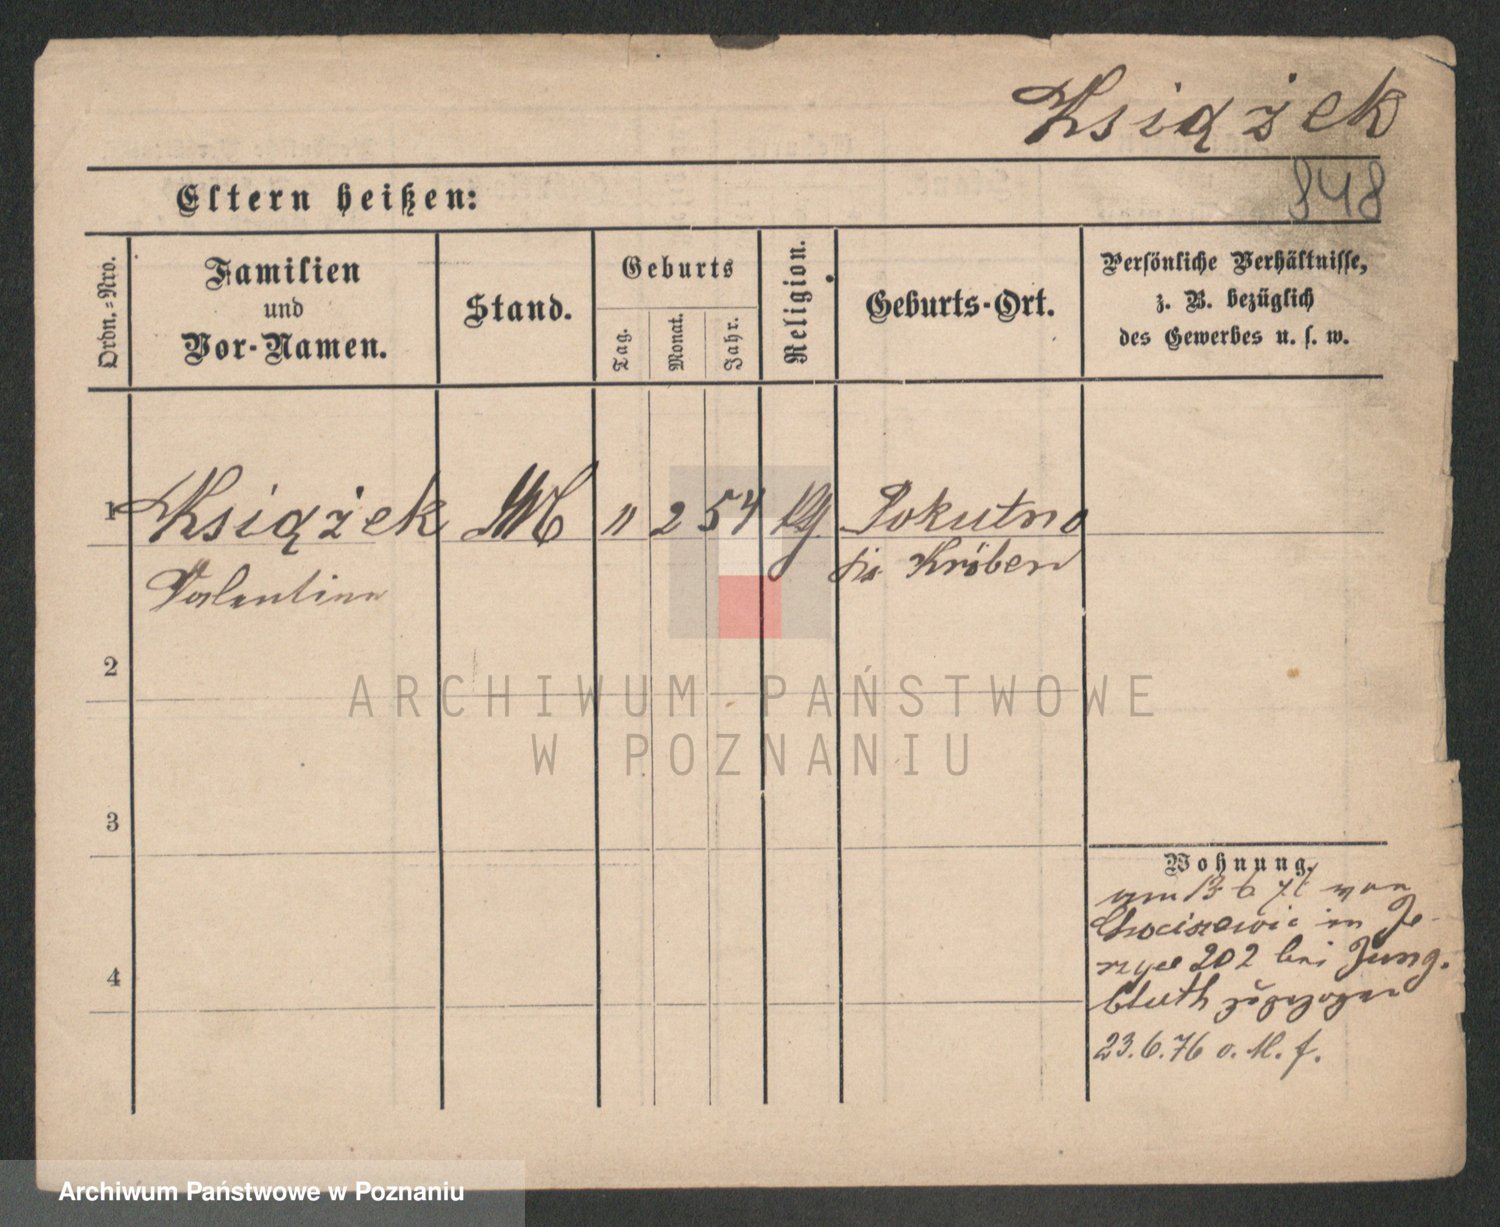 Książek
848
Eltern heißen:
Ordn.-Nro.
Familien
und
Vor-Namen.
Stand.
Geburts
Tag.
Monat.
Jahr.
Religion.
Geburts-Ort.
Persönliche Verhältnisse,
z. B. bezüglich
des Gewerbes u. s. w.
1 Książek M " 2 54 Pokutno
Valentin Kröben
2
3
4
Wohnung.
am 13 6 von
Chociszewic in Je-
rzyce 202 bei Jung-
bluth zugezogen
23.6.76 o. M. f.
ARCHIWUM PAŃSTWOWE
W POZNANIU
Archiwum Państwowe w Poznaniu